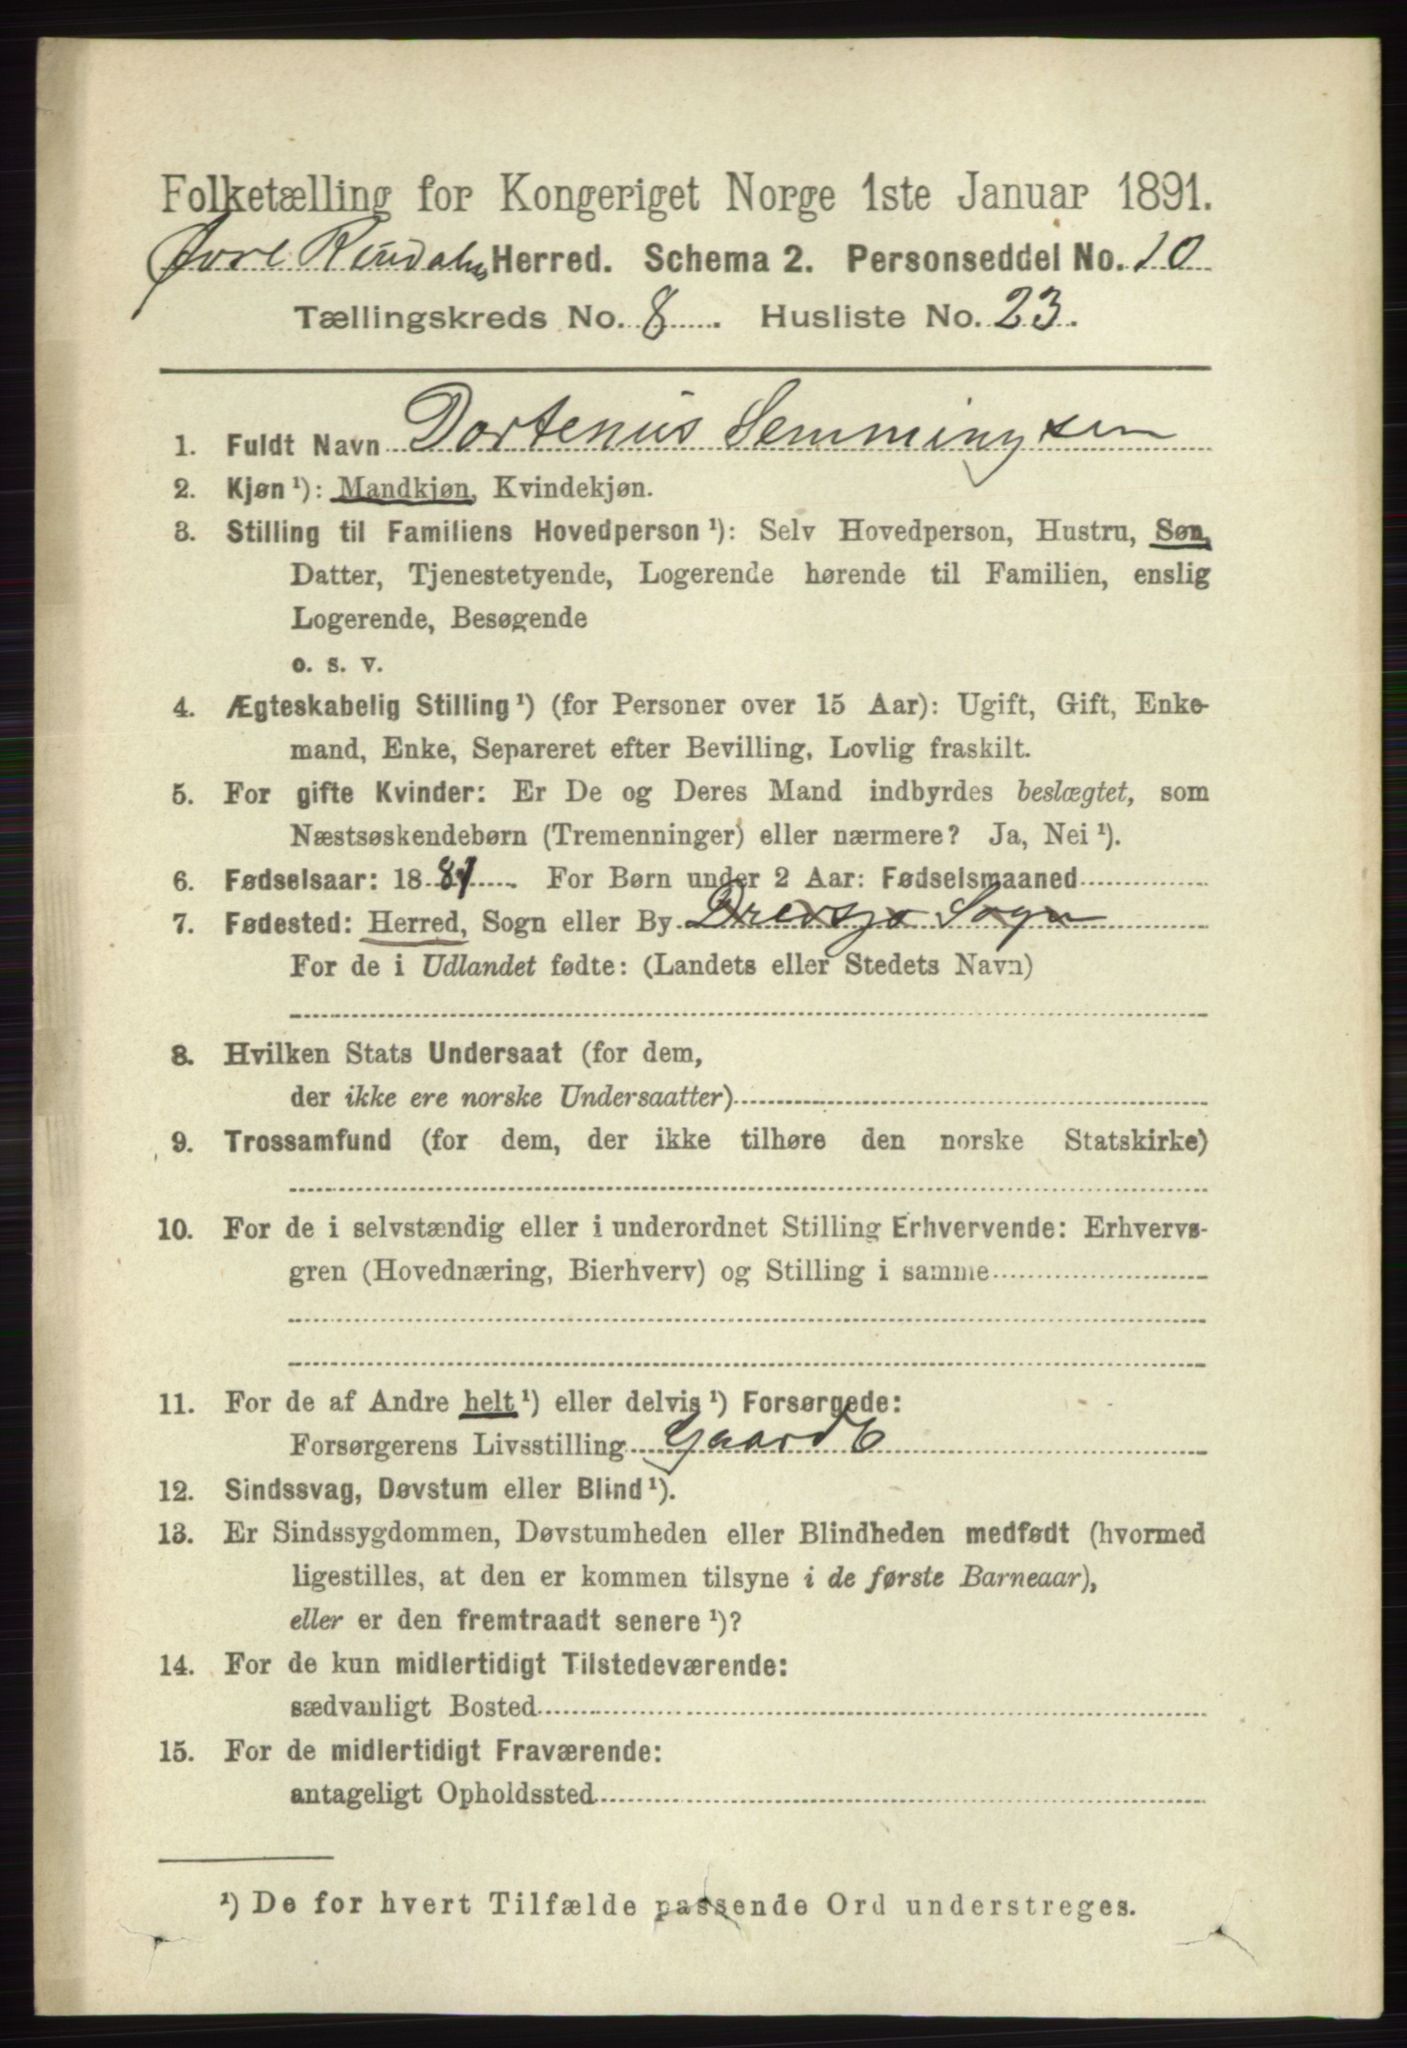 Folketælling for Kongeriget Norge 1ste Januar 1891.
Øvre Rendalen Herred. Schema 2. Personseddel No. 10
Tællingskreds No. 8. Husliste No. 23.
1. Fuldt Navn Dortenius Semmingsen
2. Kjøn ¹): Mandkjøn, Kvindekjøn.
3. Stilling til Familiens Hovedperson ¹): Selv Hovedperson, Hustru, Søn,
Datter, Tjenestetyende, Logerende hørende til Familien, enslig
Logerende, Besøgende
o. s. v.
4. Ægteskabelig Stilling ¹) (for Personer over 15 Aar): Ugift, Gift, Enke-
mand, Enke, Separeret efter Bevilling, Lovlig fraskilt.
5. For gifte Kvinder: Er De og Deres Mand indbyrdes beslægtet, som
Næstsøskendebørn (Tremenninger) eller nærmere? Ja, Nei ¹).
6. Fødselsaar: 1881. For Børn under 2 Aar: Fødselsmaaned
7. Fødested: Herred, Sogn eller By Drevsjø Sogn
For de i Udlandet fødte: (Landets eller Stedets Navn)
8. Hvilken Stats Undersaat (for dem,
der ikke ere norske Undersaatter)
9. Trossamfund (for dem, der ikke tilhøre den norske Statskirke)
10. For de i selvstændig eller i underordnet Stilling Erhvervende: Erhvervs-
gren (Hovednæring, Bierhverv) og Stilling i samme
11. For de af Andre helt ¹) eller delvis ¹) Forsørgede:
Forsørgerens Livsstilling Gaardb
12. Sindssvag, Døvstum eller Blind ¹).
13. Er Sindssygdommen, Døvstumheden eller Blindheden medfødt (hvormed
ligestilles, at den er kommen tilsyne i de første Barneaar),
eller er den fremtraadt senere ¹)?
14. For de kun midlertidigt Tilstedeværende:
sædvanligt Bosted
15. For de midlertidigt Fraværende:
antageligt Opholdssted
¹) De for hvert Tilfælde passende Ord understreges.